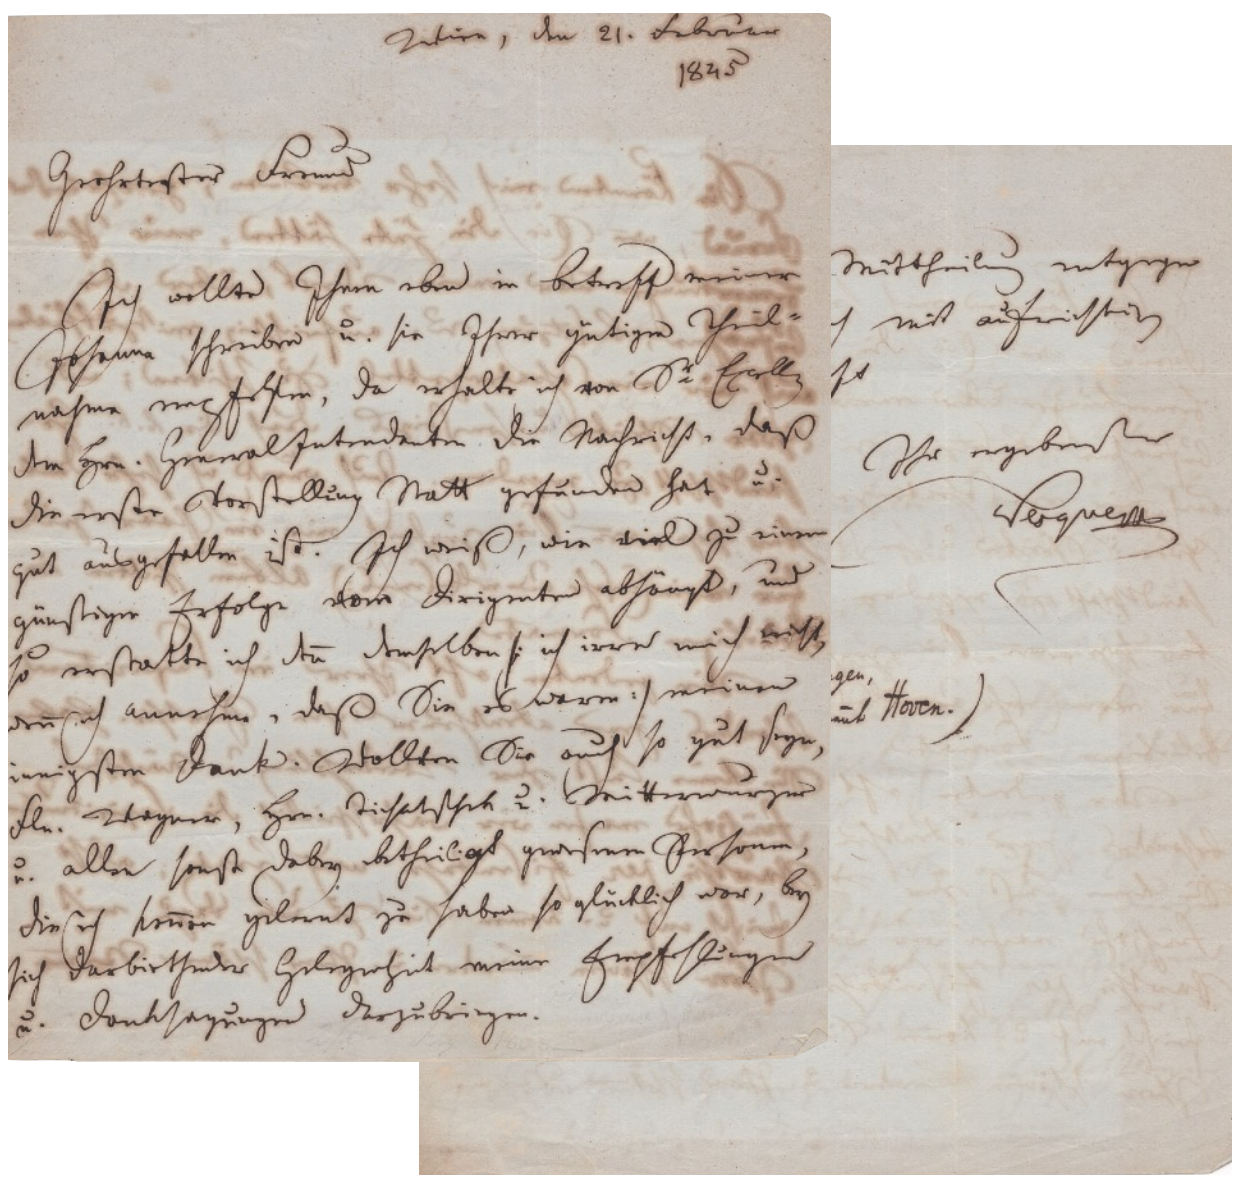 Wien, den 21. Februar
1845
Geehrtester Freund
Ich wollte Ihnen eben in betreff meiner
Johanna schreiben u. sie Ihrer gütigen Theil-
nahme empfehlen, da erhalte ich von Sr. Excellz
dem Hrn. GeneralIntendanten die Nachricht, daß
die erste Vorstellung Statt gefunden hat u.
gut ausgefallen ist. Ich weiß, wie viel zu einem
günstigen Erfolge vom Dirigenten abhängt, und
so erstatte ich den demselben /: ich irre mich nicht,
wenn ich annehme, daß Sie es waren :/ meinen
innigsten Dank. Wollten Sie auch so gut seyn,
Fln. Wagner, Hrn. Tichatschek u. Mitterwurzer
u. allen sonst dabey betheiligt gewesenen Personen,
die ich kennen gelernt zu haben so glücklich war, bey
sich darbiethender Gelegenheit meine Empfehlungen
u. Danksagungen darzubringen.
Mittheilung entgegen
mit aufrichtig
Ihr ergebenster
Vesque
gen,
Hoven.)